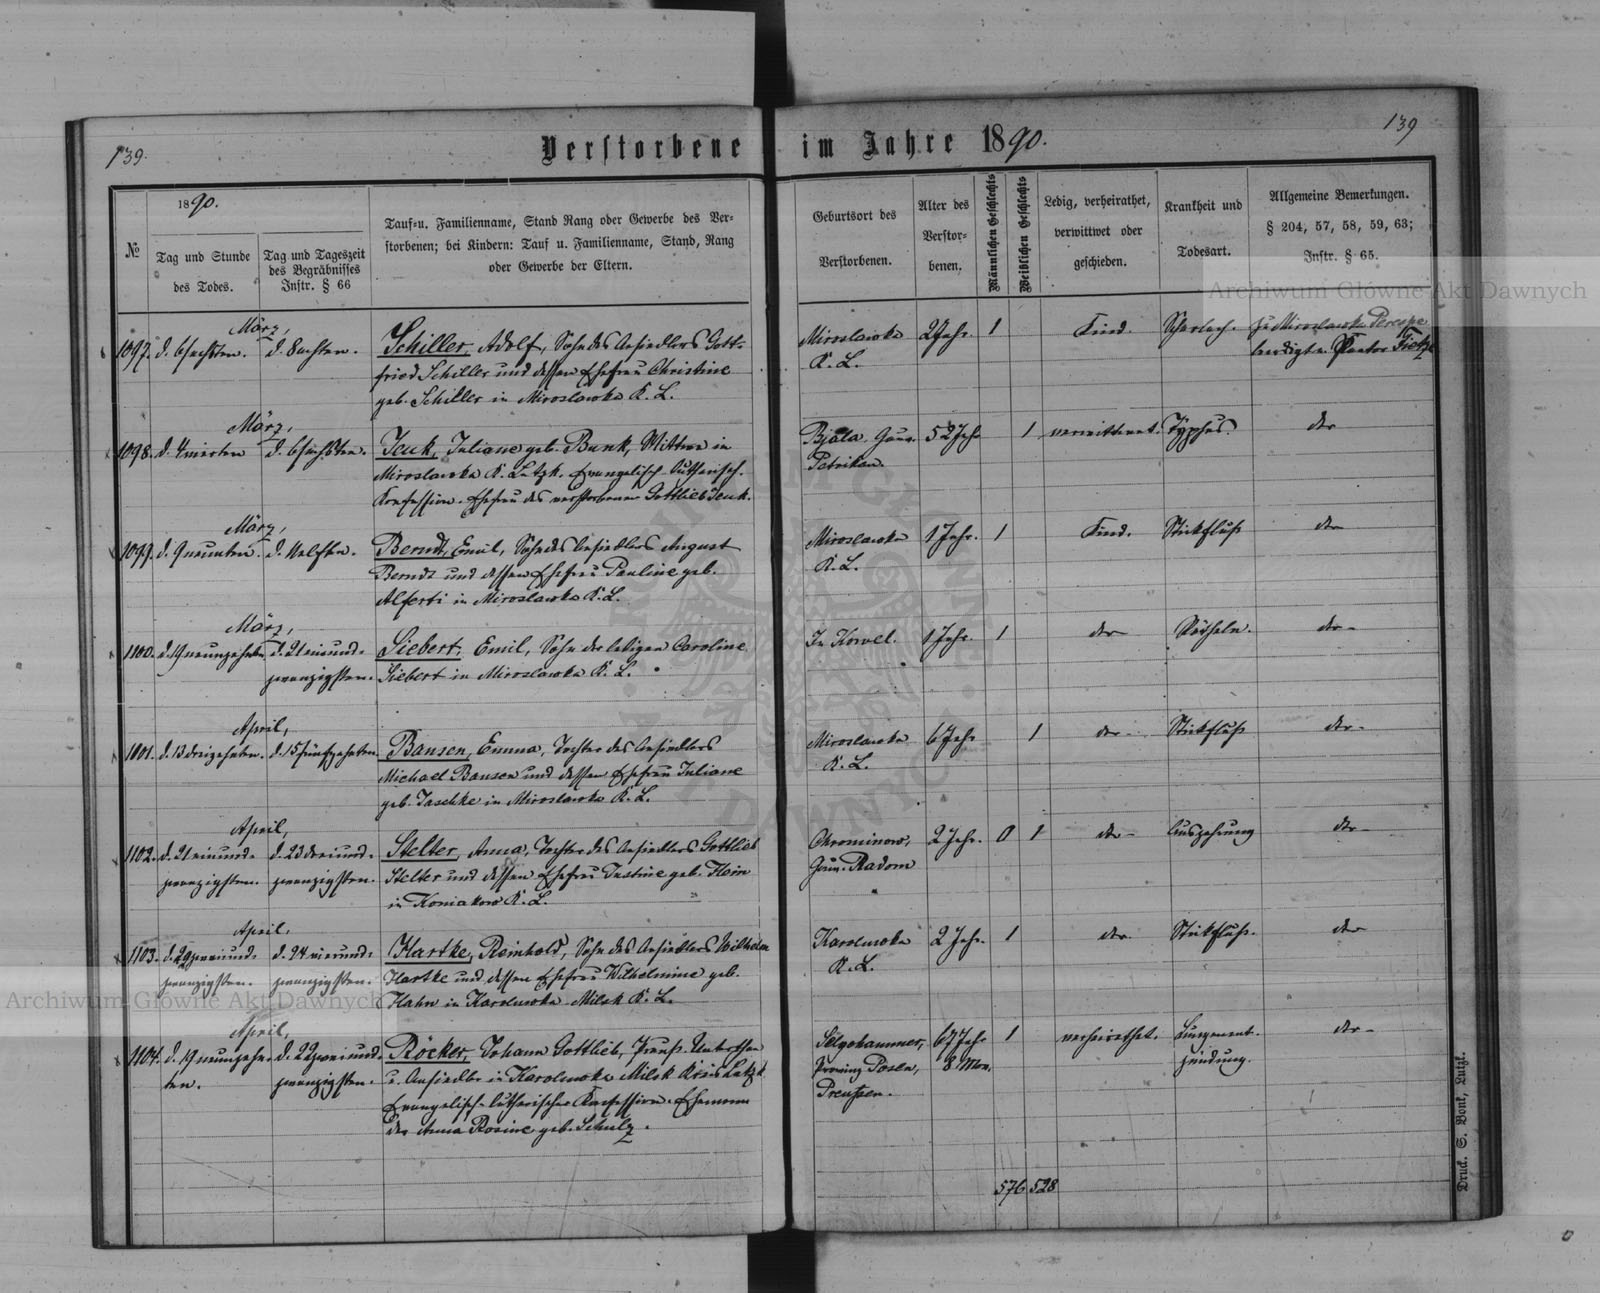 139.
139
Verstorbene im Jahre 1890.
№
1890.
Tag und Stunde
des Todes.
Tag und Tageszeit
des Begräbnisses
Instr. § 66
Tauf- u. Familienname, Stand Rang oder Gewerbe des Ver-
storbenen; bei Kindern: Tauf u. Familienname, Stand, Rang
oder Gewerbe der Eltern.
Geburtsort des
Verstorbenen.
Alter des
Verstor-
benen.
Männlichen Geschlechts
Weiblichen Geschlechts
Ledig, verheirathet,
verwittwet oder
geschieden.
Krankheit und
Todesart.
Allgemeine Bemerkungen.
§ 204, 57, 58, 59, 63;
Instr. § 65.
März,
1097. d. 6 sechsten. d. 8 achten.
Schiller, Adolf, Sohn des Ansiedlers Gott-
fried Schiller und dessen Ehefrau Christine
geb. Schiller in Miroslawka K. L.
Miroslawka
K. L.
2 Jahr. 1 Kind. Scharlach. Zu Miroslawka
beerdigt v. Pastor
März,
1098. d. 4 vierten d. 6 sechsten.
Jeuk, Juliane geb. Bunk, Wittwe in
Miroslawka K. Lutzk. Evangelisch-Lutherisch.
Konfession. Ehefrau des verstorbenen Gottlieb Jeuk.
Bjala Gouv.
Petrikau.
52 Jahr 1 verwittwet. Typhus. der
März,
1099. d. 9 neunten. d. 11 elften.
Berndt, Emil, Sohn des Ansiedlers August
Berndt und dessen Ehefrau Pauline geb.
Alferti in Miroslawka K. L.
Miroslawka
K. L.
1 Jahr. 1 Kind. Stickfluß der
März,
1100. d. 19 neunzehnten d. 21 einund-
zwanzigsten.
Siebert, Emil, Sohn der ledigen Caroline
Siebert in Miroslawka K. L.
In Kowel.
1 Jahr. 1 der der
April,
1001. d. 13 dreizehnten. d. 15 fünfzehnten
Bansen, Emma, Tochter des Ansiedlers
Michael Bansen und dessen Ehefrau Juliane
geb. Jaschke in Miroslawka K. L.
Miroslawka
K. L.
6 Jahr 1 der Stickfluß der
April,
1102. d. 21 einund-
zwanzigsten. d. 23 dreiund-
zwanzigsten.
Stelter, Anna, Tochter des Ansiedlers Gottlieb
Stelter und dessen Ehefrau Justine geb. Hein
in Koniakow K. L.
Chrominow,
Gouv. Radom
2 Jahr. 0 1 der Auszehrung der
April,
1103. d. 22 zweiund-
zwanzigsten. d. 24 vierund-
zwanzigsten.
Hartke, Reinhold, Sohn des Ansiedlers Wilhelm
Hartke und dessen Ehefrau Wilhelmine geb.
Hahn in Karolinowka Milsk K. L.
K. L.
2 Jahr. 1 der Stickfluß. der
April,
1104. d. 19 neunzehn-
ten. d. 22 zweiund-
zwanzigsten.
Röcker, Johann Gottlieb, Preuß. Unterthan
u. Ansiedler in Milsk Kreis Lutzk
Evangelisch-lutherischer Konfession. Ehemann
der Anna Rosine geb. Schulz.
Selgohammer,
Provinz Posen,
Preußen.
67 Jahr
8 Mon.
1 verheirathet. Lungenent-
zündung. der
576 528
Druck. S. Bonk, Lutzk.
Archiwum Główne Akt Dawnych
Archiwum Główne Akt Dawnych